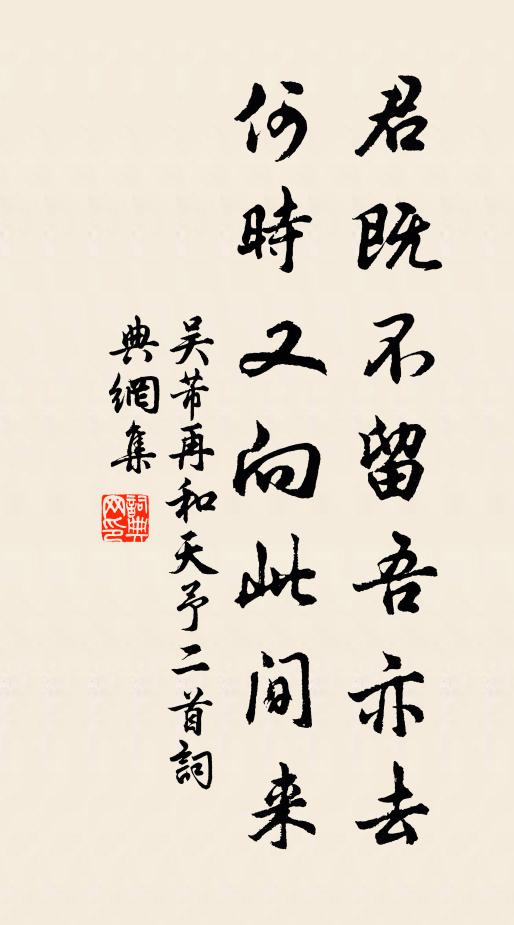 君既不留吾亦去
何時又向此间来
吴芾再和天予二首詞
典網集
詞典
网印